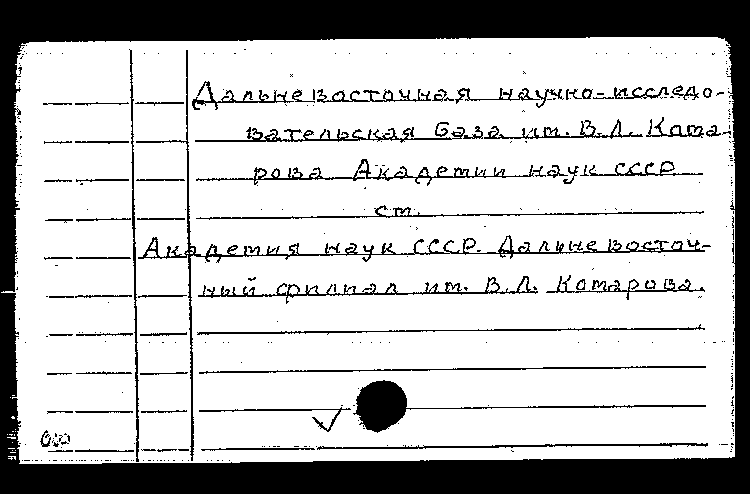 Дальневосточная научно-исследо-
вательская база им. В.Л. Кома-
рова Академии наук СССР
см.
Академия наук СССР. Дальневосточ-
ный филиал им. В.Л. Комарова.